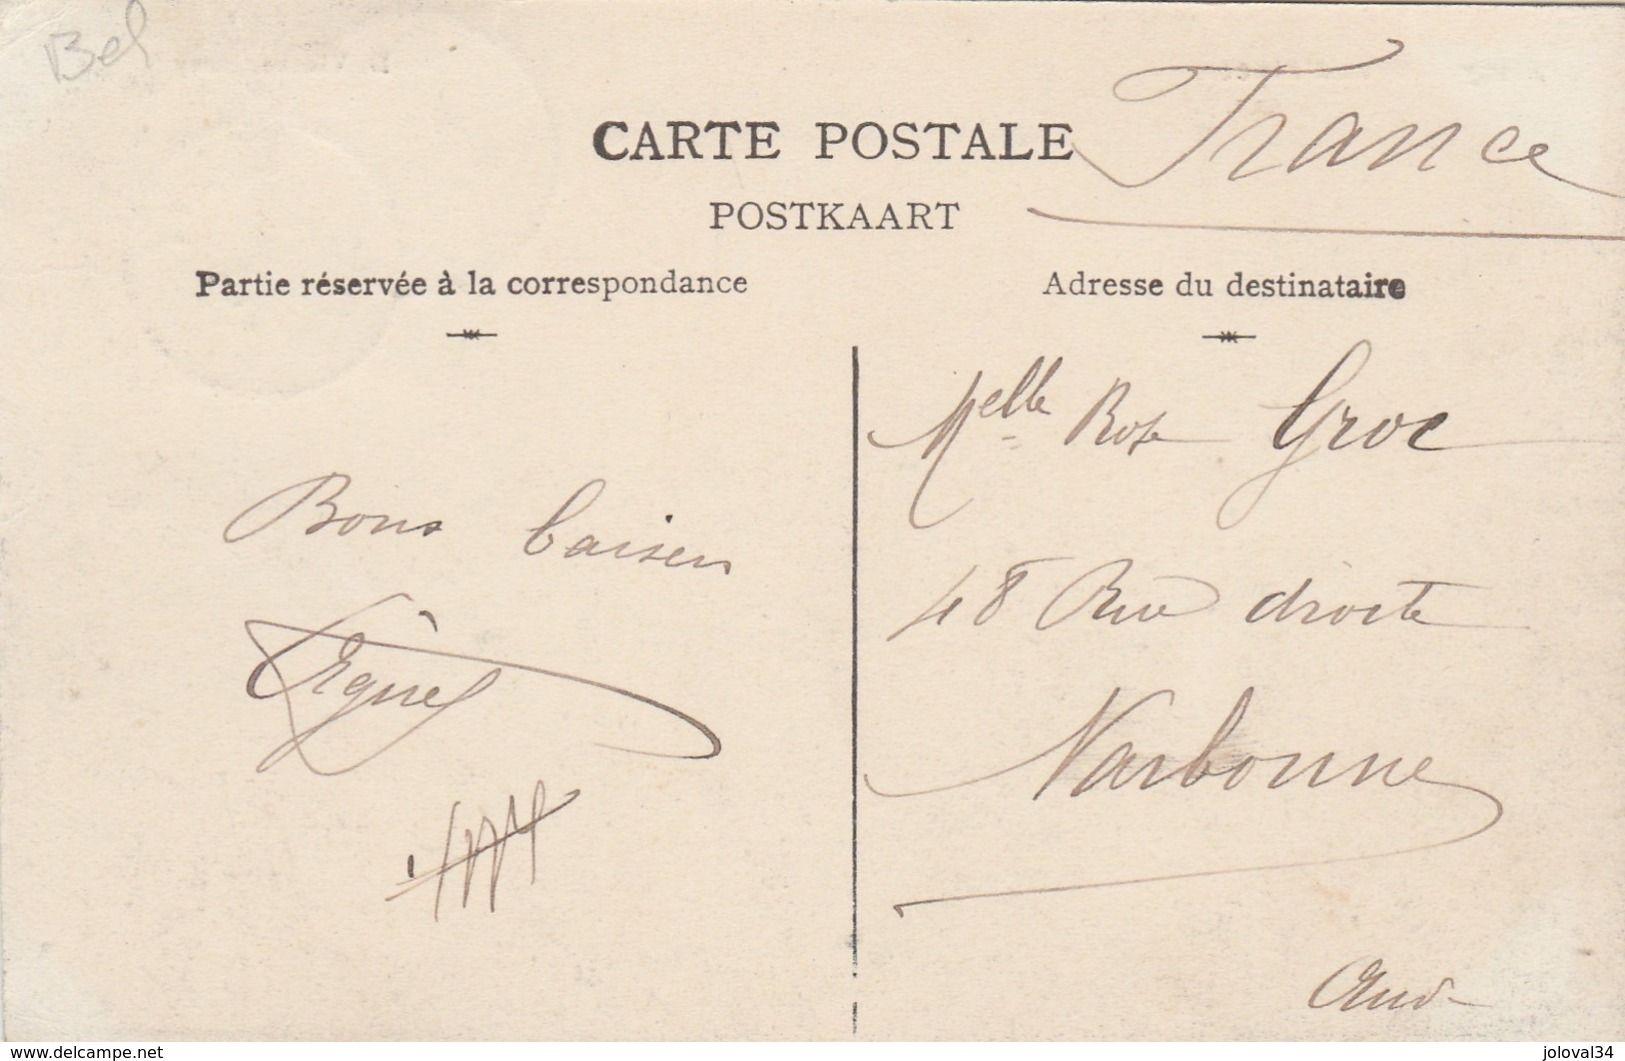 Bel
CARTE POSTALE
France
POSTKAART
Partie réservée à la correspondance
Adresse du destinataire
Melle Rose Groc
Bons baisers
48 Rue droite
Narbonne
Aude
www.delcampe.net
joloval34